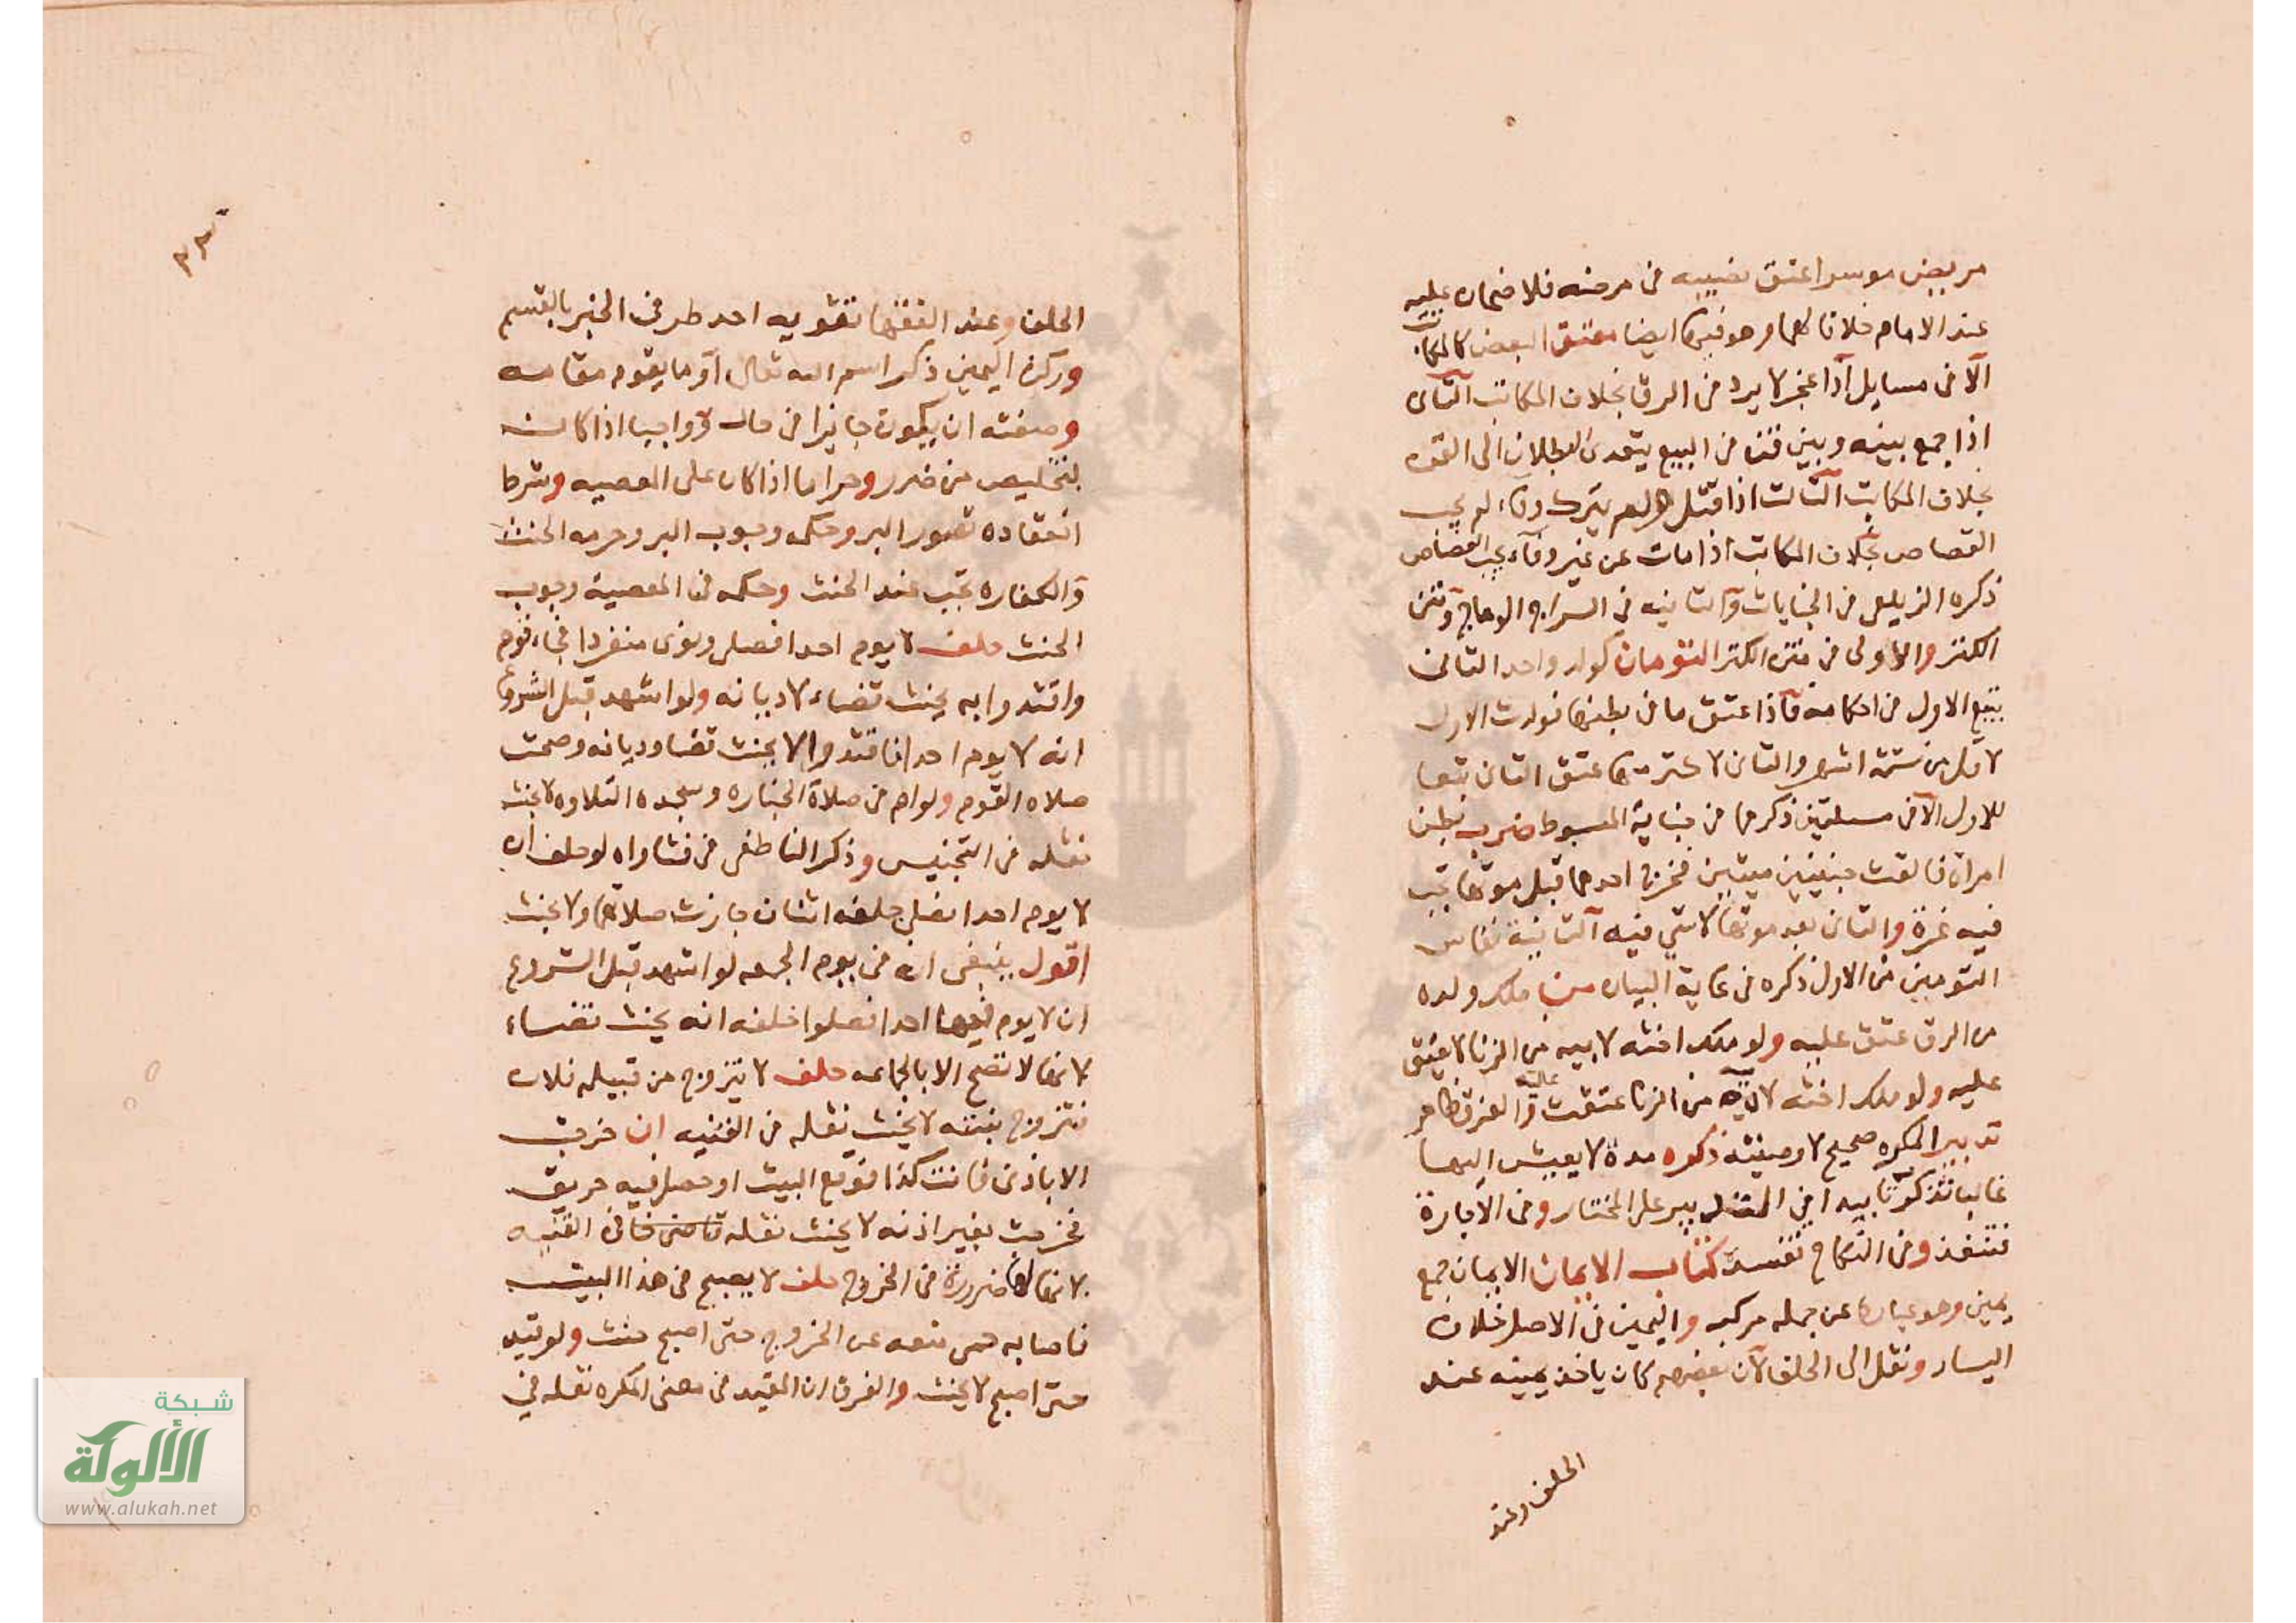 مريض موسر اعتق نصيبه في مرضه فلا ضمان عليه
عند الامام خلافا لهما وهو فيها ايضا معتق البعض كالمكاتب
الا في مسايل اذا عجز لا يرد في الرق بخلاف المكاتب الثاني
اذا جمع بينه وبين قن في البيع يتعدى البطلان الى القن
بخلاف المكاتب الثالث اذا قتل ولم يترك وفاء لم يجب
القصاص بخلاف المكاتب اذا مات عن غير وفاء يجب القصاص
ذكره الزيلعي في الجنايات والثانيه في السراج الوهاج ومتن
الكنز والاولى في متن الكنز التومان كولد واحد الثاني
يتبع الاول في احكامه فاذا اعتق ما في بطنها فولدت الاول
لاقل من ستة اشهر والثاني لاكثر منها عتق الثاني تبعا
للاول الا في مسلتين ذكرهما في جناية المبسوط ضرب بطن
امراة فالقت جنينين ميتين فخرج احدهما قبل موتها تجب
فيه غرة والثاني بعد موتها لا شي فيه الثانية نفاس
التومين من الاول ذكره في غاية البيان من ملك ولده
من الرق عتق عليه ولو ملك اخته لابيه من الزنا لا يعتق
عليه ولو ملك اخته لامه من الزنا عتقت عليه والفرق ظاهر
تدبير المكره صحيح لا وصيته ذكره مدة لا يعيش اليها
غالبا تذكر تابيد في التدبير على المختار وفي الاجارة
فتنفذ وفي النكاح تفسد كتاب الايمان الايمان جمع
يمين وهو عبارة عن جمله مركبه واليمين في الاصل خلاف
اليسار ونقل الى الحلف لان بعضهم كان ياخذ يمينه عند
الحلف وعند
الحلف وعند الفقها تقويه احد طرفي الخبر بالقسم
وركن اليمين ذكر اسم الله تعالى او ما يقوم مقامه
وصفته ان يكون جايزا في حال وواجبا اذا كانت
لتخليص من ضرر وحراما اذا كان على المعصيه وشرط
انعقاده تصور البر وحكمه وجوب البر وحرمه الحنث
والكفاره تجب عند الحنث وحكمه في المعصية وجوب
الحنث حلف لا يوم احدا فصلى ونوى منفردا فجاء قوم
واقتدوا به يحنث قضاء لا ديانه ولو اشهد قبل الشروع
انه لا يوم احدا فاقتدوا لا يحنث قضا وديانه وصحت
صلاه القوم ولو ام في صلاة الجنازه وسجده التلاوه لا يحنث
نقله في التجنيس وذكر الناطفي في فتاواه لو حلف ان
لا يوم احدا فصلى خلفه اثنان جازت صلاتهما ولا يحنث
اقول ينبغي ان في يوم الجمعه لو اشهد قبل الشروع
ان لا يوم فيها احدا فصلوا خلفه انه يحنث قضاء
لانها لا تصح الا بالجماعه حلف لا يتزوج من قبيله فلان
فتزوج بنته لا يحنث نقله في القنيه ان خرجت
الا باذني فانت كذا فوقع البيت او حصل فيه حريق
فخرجت بغير اذنه لا يحنث نقله قاضي خان القنيه
لانها لها ضرورة في الخروج حلف لا يصبح في هذا البيت
فاصابه حمى منعه عن الخروج حتى اصبح حنث ولو قيد
حتى اصبح لا يحنث والفرق ان المقيد في معنى المكره نقله في
شبكة
الألوكة
www.alukah.net